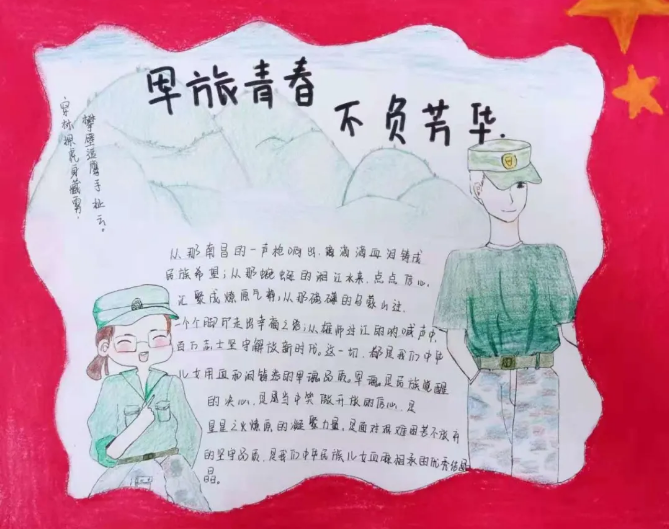 军旅青春
不负芳华.
攀壁遥鹰手扯云。
穿林裸花身藏勇.
从那南昌的一声枪响出,滴滴血泪铸成
民族希望;从那蜿蜒的湘江水来,点点信心,
汇聚成燎原气势;从那磅礴的乌蒙山过
一个个脚印走出幸福之路;从雄师过江的呐喊声中,
百万志士坚守解放新时代。这一切,都是我们中华
儿女用血和泪铸就的军魂品质。军魂,是民族觉醒
的决心,是其中笑傲开放的信心,是
星星之火燎原的凝聚力量,是面对艰难困苦不放弃
的坚守品质,是我们中华民族儿女血脉相承的优秀结晶
晶。